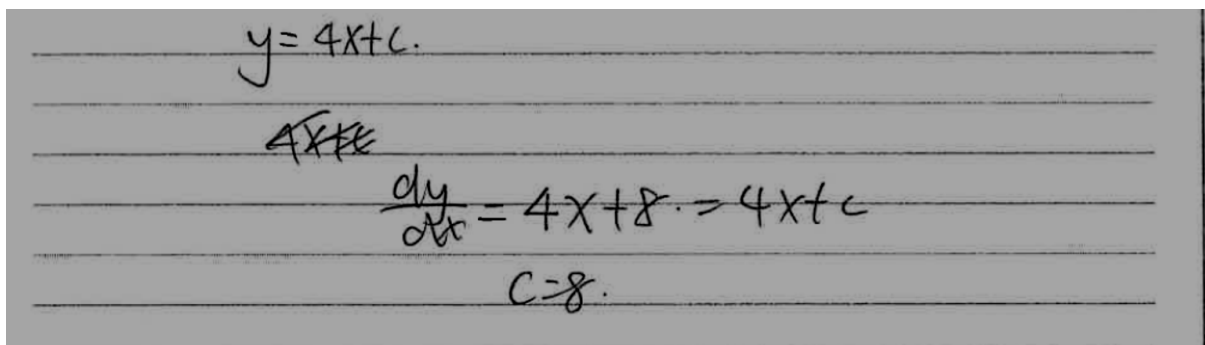 y = 4x+c.
4x+c
dy/dx = 4x+8. = 4x+c
c=8.